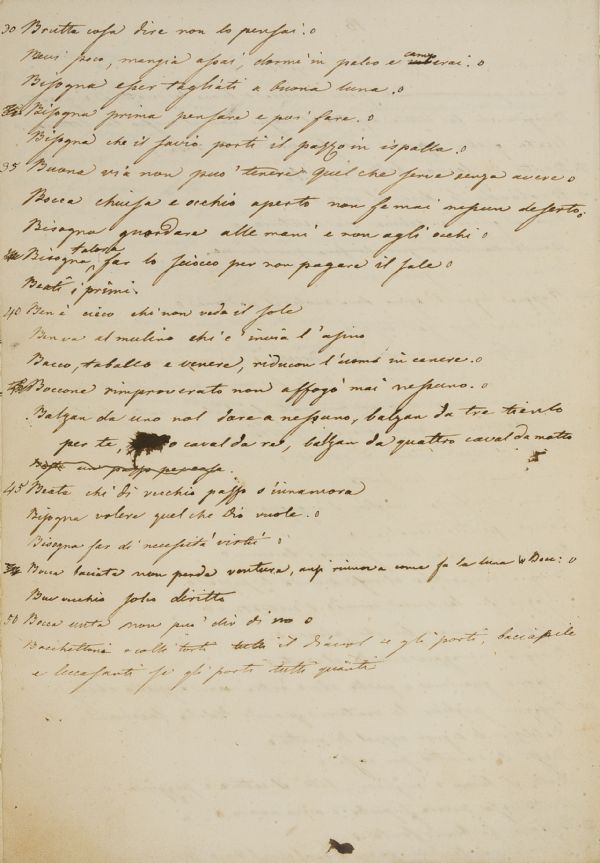 30 Brutta cosa dire non lo pensai.
Bevi poco, mangia assai, dormi in palco e camperai.
Bisogna esser tagliati a buona luna.
Bisogna prima pensare e poi fare.
Bisogna che il savio porti il pazzo in ispalla.
35 Buona via non puo' tenere quel che serve senza avere
Bocca chiusa e occhio aperto non fe mai nessun deserto.
Bisogna guardare alle mani e non agli occhi
Bisogna talora far lo sciocco per non pagare il sale
Beati i primi.
40 Ben è cieco chi non vede il sole
Ben va al mulino chi c'invia l'asino
Bacco, tabacco e venere, riducon l'uomo in cenere.
Boccone rimproverato non affogò mai nessuno.
Balzan da uno nol dare a nessuno, balzan da tre tienlo
per te, o caval da re, balzan da quattro caval da matto
45 Beata chi di vecchio pazzo s'innamora
Bisogna volere quel che Dio vuole.
Bisogna far di necessità virtù
Bocca baciata non perde ventura, anzi rinnova come fa la luna Bocc:
Bue vecchio solco diritto
50 Bocca unta non può dir di no
Bacchettoni e colli torti tutti il diavol se gli porti, baciapile
e leccasanti se gli porti tutti quanti